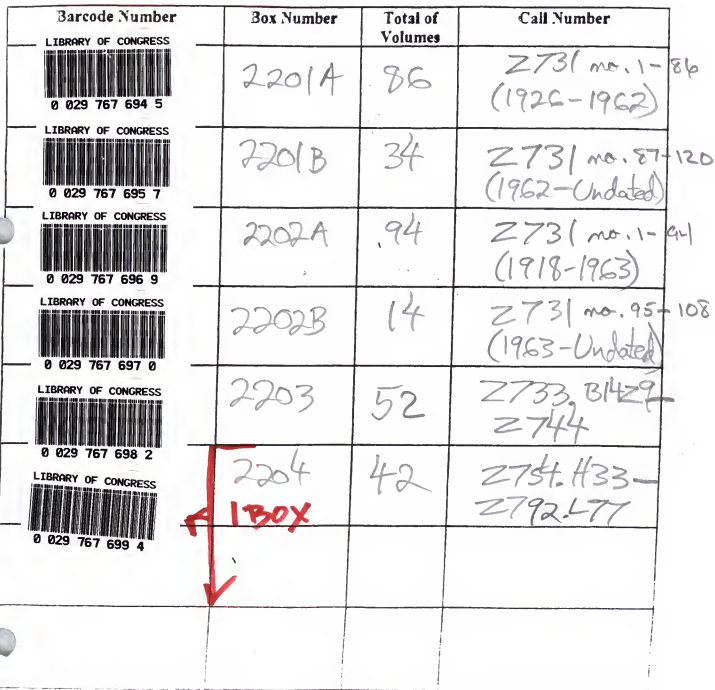 Barcode Number Box Number Total of Volumes Call Number
LIBRARY OF CONGRESS
0 029 767 694 5
2201A 86 Z731 no. 1-86
(1926-1962)
LIBRARY OF CONGRESS
0 029 767 695 7
2201B 34 Z731 no. 87-120
(1962-Undated)
LIBRARY OF CONGRESS
0 029 767 696 9
2202A 94 Z731 no. 1-94
(1918-1963)
LIBRARY OF CONGRESS
0 029 767 697 0
2202B 14 Z731 no. 95-108
(1963-Undated)
LIBRARY OF CONGRESS
0 029 767 698 2
2203 52 Z733.B14Z9-
Z744
LIBRARY OF CONGRESS
0 029 767 699 4
2204 42 Z754.H33-
Z792.L77
1 BOX